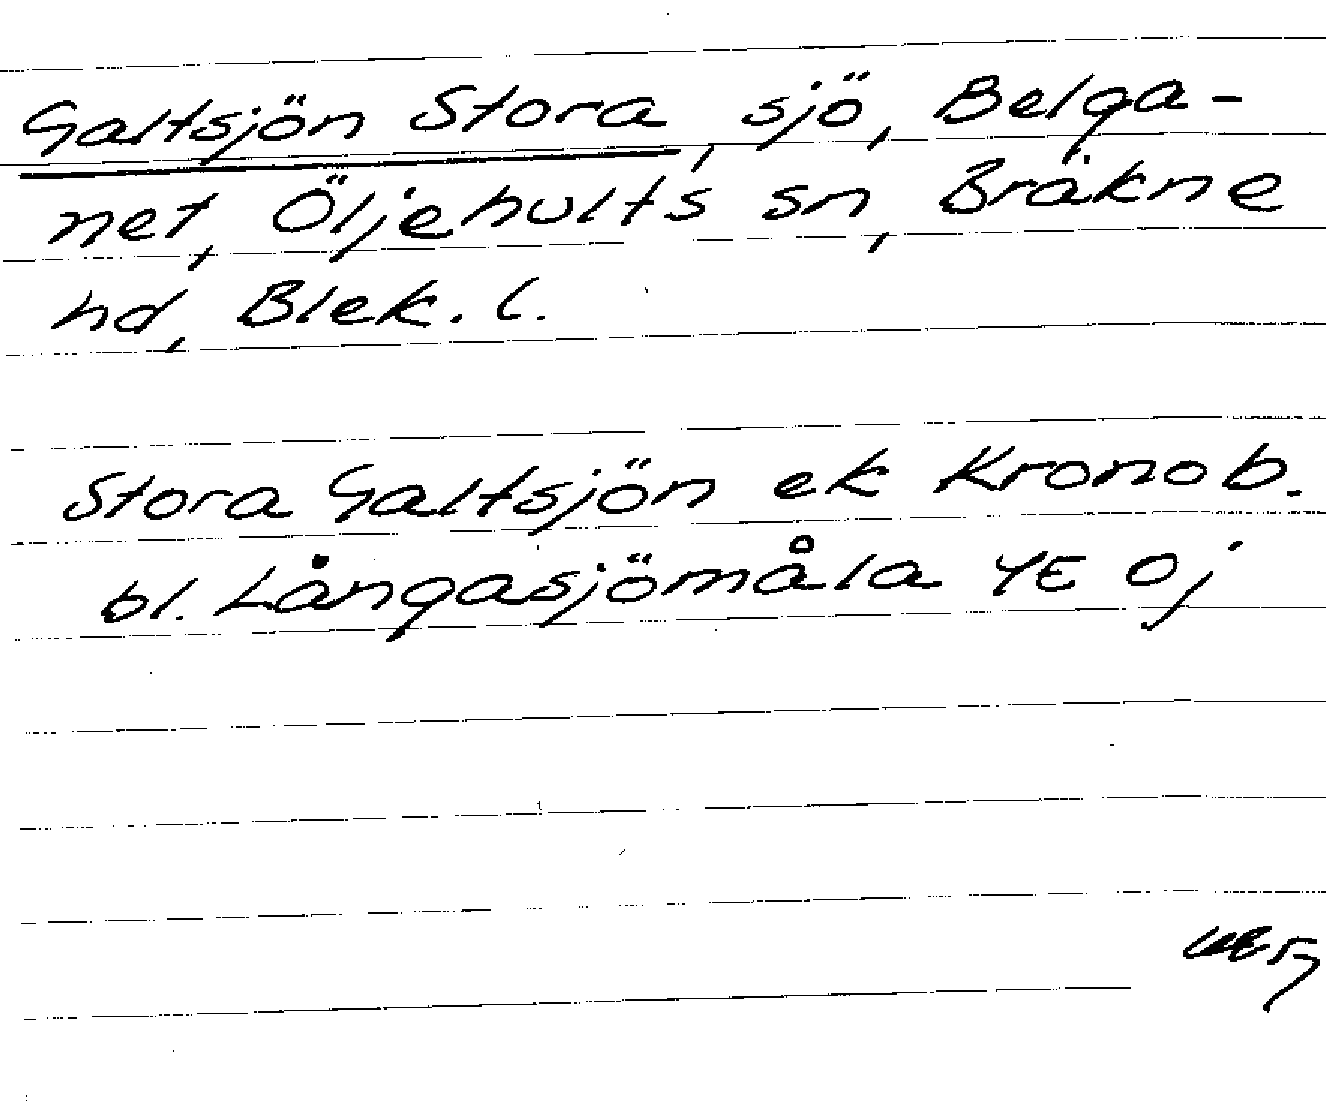 Galtsjön Stora, sjö, Belga-
net, Öljehults sn, Bräkne
hd, Blek. l.
Stora Galtsjön ek Kronob.
bl. Långasjömåla 4E Oj